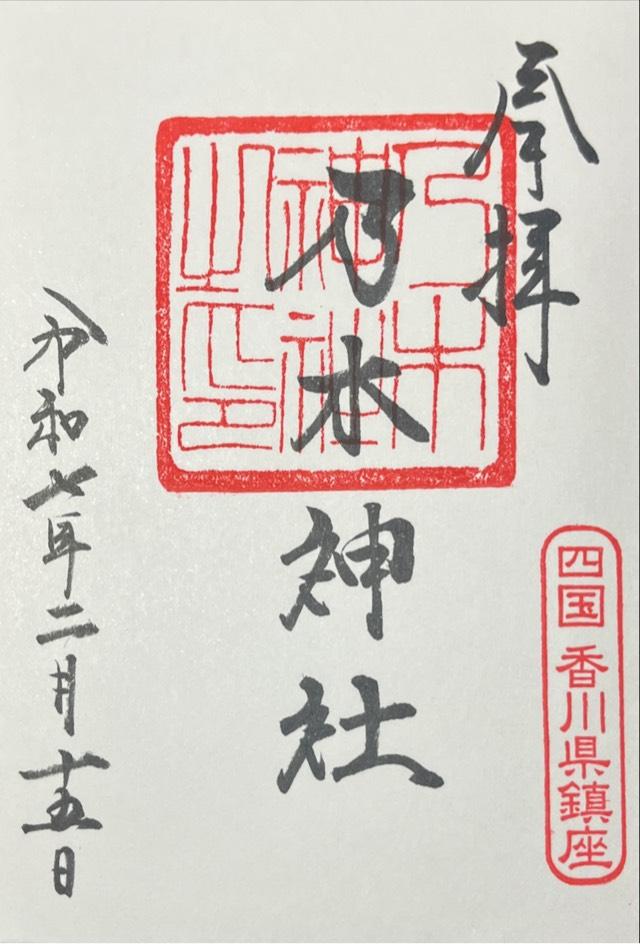 奉拝
四国 香川県鎮座
乃木神社
乃木
神社
之印
令和七年二月十五日